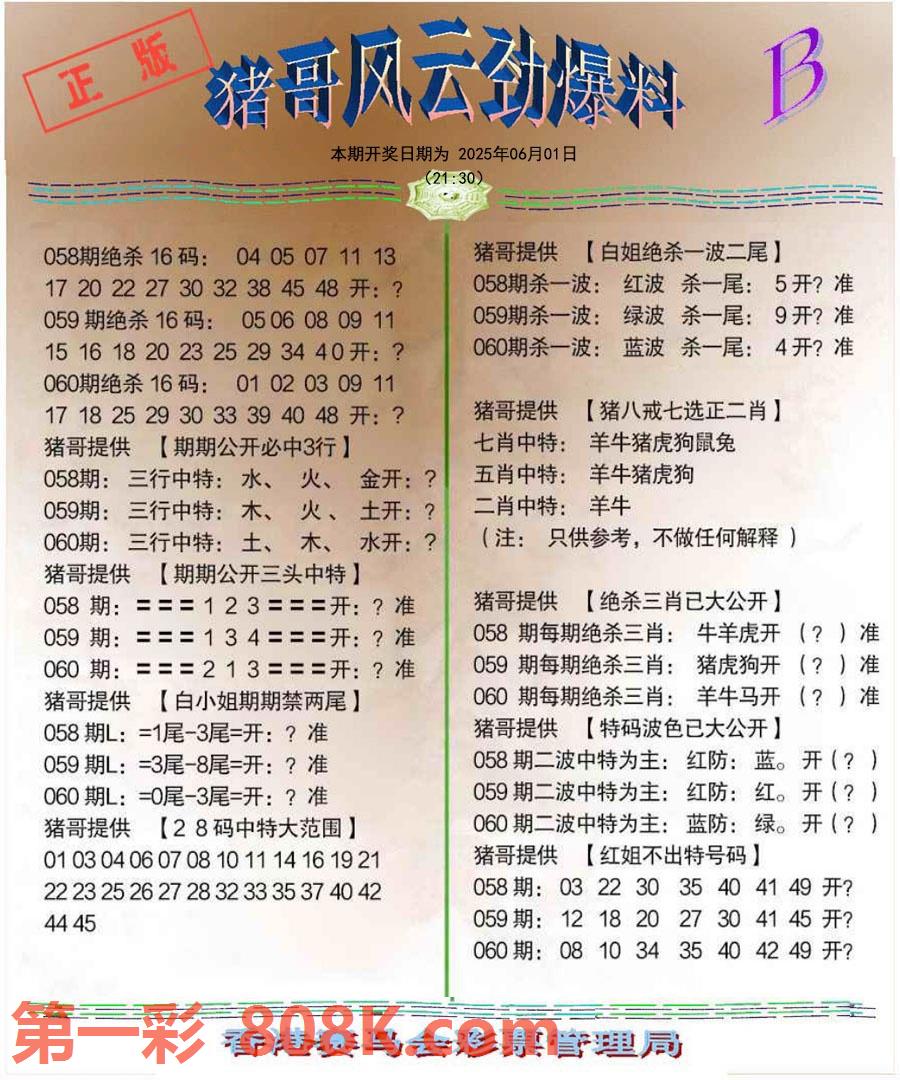 正版
猪哥风云劲爆料
B
本期开奖日期为 2025年06月01日
(21:30)
058期绝杀 16 码： 04 05 07 11 13
17 20 22 27 30 32 38 45 48 开：?
059 期绝杀 16 码： 05 06 08 09 11
15 16 18 20 23 25 29 34 4 0 开：?
060期绝杀 16 码： 01 02 03 09 11
17 18 25 29 30 33 39 40 48 开：?
猪哥提供 【期期公开必中3行】
058期： 三行中特： 水、 火、 金开：?
059期： 三行中特： 木、 火 、 土开：?
060期： 三行中特： 土、 木、 水开：?
猪哥提供 【期期公开三头中特】
058 期：=== 1 2 3 ===开：? 准
059 期：=== 1 3 4 ===开：? 准
060 期：=== 2 1 3 ===开：? 准
猪哥提供 【白小姐期期禁两尾】
058 期L：=1尾-3尾=开：? 准
059 期L：=3尾-8尾=开：? 准
060 期L：=0尾-3尾=开：? 准
猪哥提供 【2 8 码中特大范围】
01 03 04 06 07 08 10 11 14 16 19 21
22 23 25 26 27 28 32 33 35 37 40 42
44 45
猪哥提供 【白姐绝杀一波二尾】
058期杀一波： 红波 杀一尾： 5 开? 准
059期杀一波： 绿波 杀一尾： 9 开? 准
060期杀一波： 蓝波 杀一尾： 4 开? 准
猪哥提供 【猪八戒七选正二肖】
七肖中特： 羊牛猪虎狗鼠兔
五肖中特： 羊牛猪虎狗
二肖中特： 羊牛
（注： 只供参考，不做任何解释 ）
猪哥提供 【绝杀三肖已大公开】
058 期每期绝杀三肖： 牛羊虎开 （? ）准
059 期每期绝杀三肖： 猪虎狗开 （? ）准
060 期每期绝杀三肖： 羊牛马开 （? ）准
猪哥提供 【特码波色已大公开】
058 期二波中特为主： 红防： 蓝。 开（? ）
059 期二波中特为主： 红防： 红。 开（? ）
060 期二波中特为主： 蓝防： 绿。 开（? ）
猪哥提供 【红姐不出特号码】
058 期： 03 22 30 35 40 41 49 开?
059 期： 12 18 20 27 30 41 45 开?
060 期： 08 10 34 35 40 42 49 开?
第一彩 808K.com
香港赛马会彩票管理局